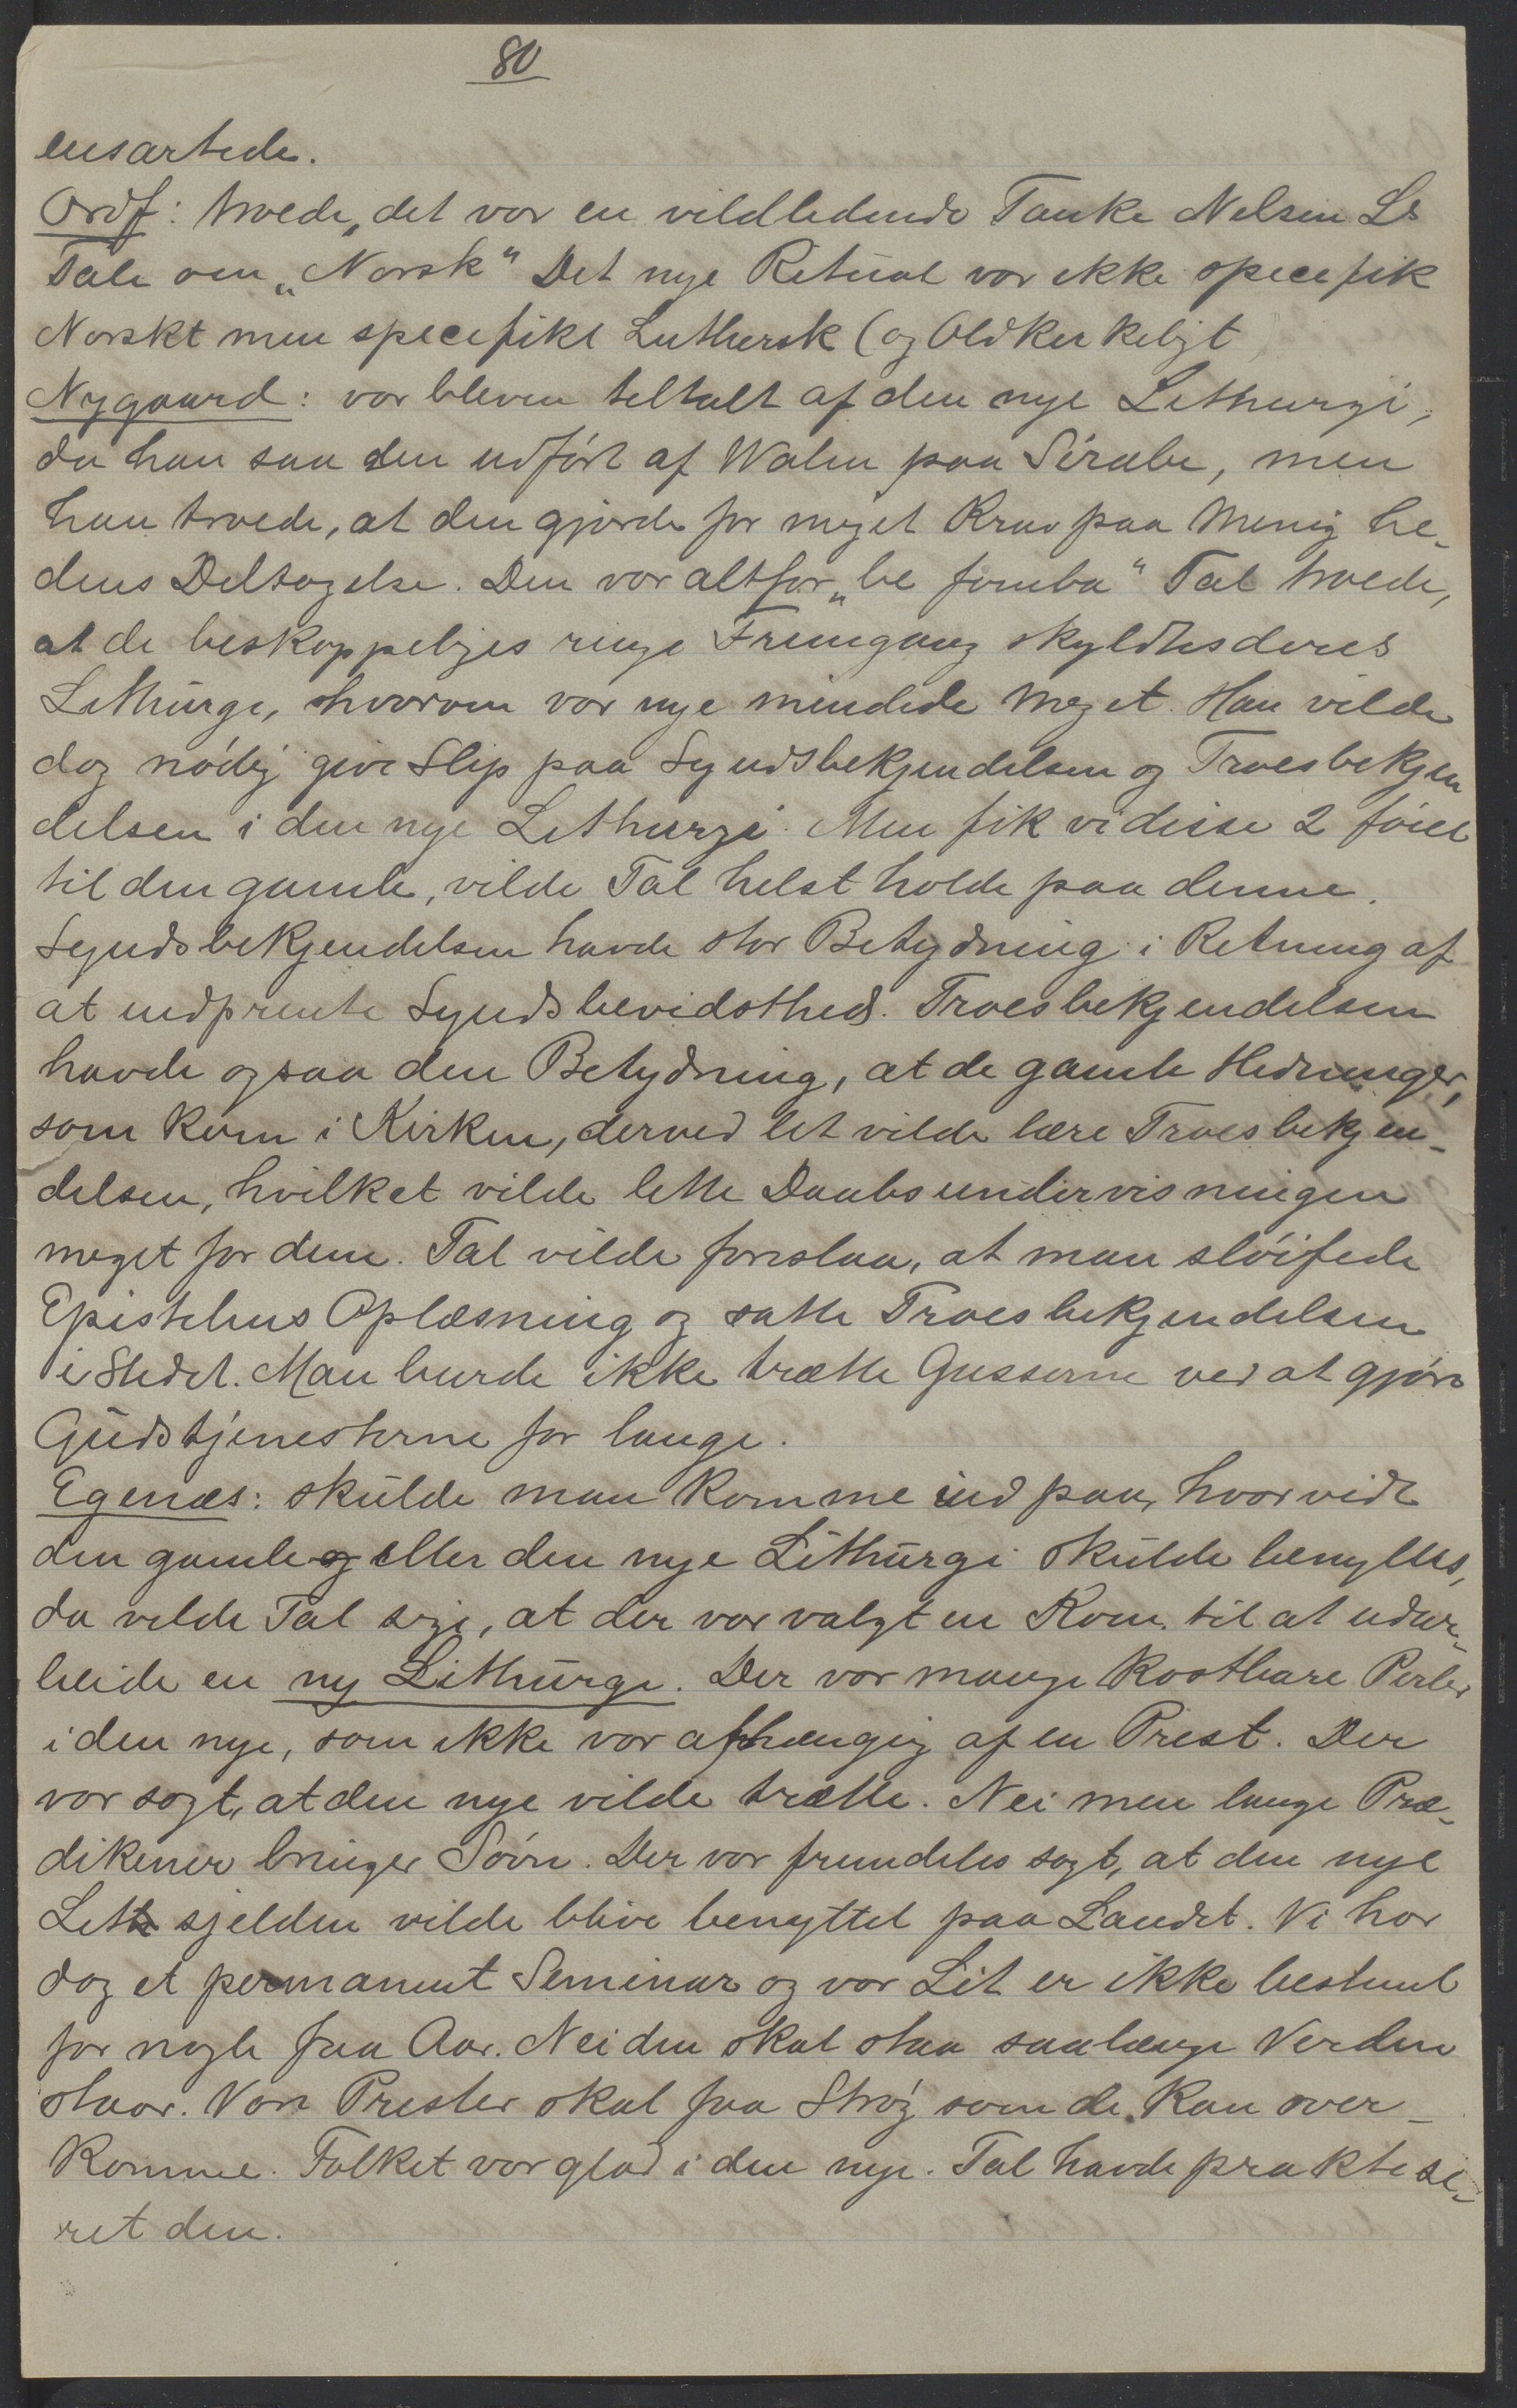 80
ensartede.
Ordf: troede, det var en vildledende Tanke Nelsen Ls
Tale om „Norsk" Det nye Ritual var ikke specefik
Norskt men specefikt Luthersk (og Oldkirkeligt
Nygaard: var bleven tiltalt af den nye Lithurgi,
da han saa den udført af Walen paa Sirabe, men
han troede, at den gjorde for meget Krav paa Menighe-
dens Deltagelse. Den var altfor „be fomba" Tal troede,
at de biskoppeliges ringe Fremgang skyldtes deres
Lithurgi, hvorom vor nye mindede meget. Han vilde
dog nødig give Slip paa Syndsbekjendelsen og Troesbekjen
delsen i den nye Lithurgi. Men fik vi disse 2 føiet
til den gamle, vilde Tal helst holde paa denne.
Syndsbekjendelsen havde stor Betydning i Retning af
at indprente Syndsbevidsthed. Troesbekjendelsen
havde ogsaa den Betydning, at de gamle Hedninger,
som kom i Kirken, derved let vilde lære Troesbekjen-
delsen, hvilket vilde lette Daabsundervisningen
meget for dem. Tal vilde foreslaa, at man sløifede
Epistelens Oplæsning og satte Troesbekjendelsen
i Stedet. Man burde ikke trætte Gasserne ved at gjøre
Gudstjenesterne for lange.
Egenæs: skulde man komme ind paa, hvorvidt
den gamle og eller den nye Lithurgi skulde benyttes,
da vilde Tal sige, at der var valgt en Kom. til at udar-
beide en ny Lithurgi. Der var mange kostbare Perler
i den nye, som ikke var afhængig af en Prest. Der
var sagt, at den nye vilde trætte. Nei men lange Præ-
dikener bringer Søvn. Der var fremdeles sagt, at den nye
Lith sjelden vilde blive benyttet paa Landet. Vi har
dog et permanent Seminar og vor Lit er ikke bestemt
for nogle faa Aar. Nei den skal staa saalænge Verden
staar. Vore Prester skal faa Strøg som de kan over-
komme. Folket var glad i den nye. Tal havde praktise-
ret den.